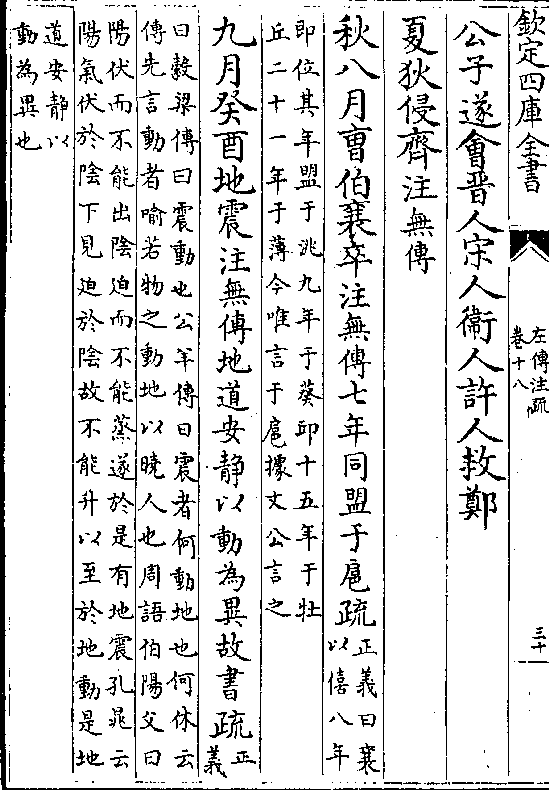 欽定四庫全書
左傳注疏
卷十八
三十
公子遂會晉人宋人衞人許人救鄭
夏狄侵齊注無傳
秋八月曹伯襄卒注無傳七年同盟于扈疏
正義曰襄
以僖八年
即位其年盟于洮九年于葵邱十五年于牡
丘二十一年于薄今唯言于扈據文公言之
九月癸酉地震注無傳地道安静以動為異故書疏
正
義
曰穀梁傳曰震動也公羊傳曰震者何動地也何休云
傳先言動者喻若物之動地以曉人也周語伯陽父曰
陽伏而不能出隂迫而不能蒸遂於是有地震孔晁云
陽氣伏於陰下見迫於陰故不能升以至於地動是地
道安静以
動為異也